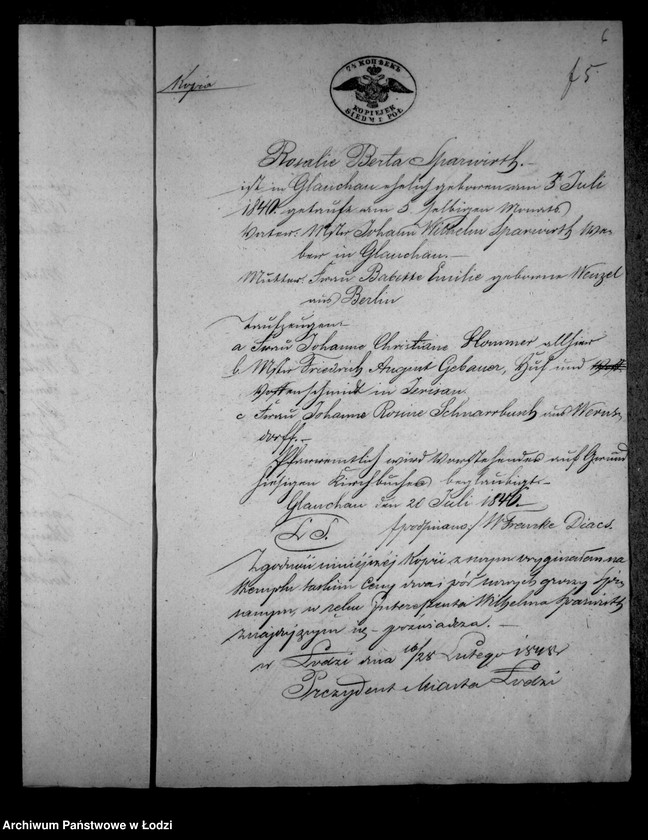 6
f 5
Kopia
7½ КОПѢЕКЪ
KOPIEJEK
SIEDM I PÓŁ
Rosalie Berta Sparwirth.-
ist in Glauchau ehelich geboren am 3 Juli
1840. getauft am 5 selbigen Monats
Vater: Mstr Johann Wilhelm Sparwirth We-
ber in Glauchau.-
Mutter: Frau Babette Emilie geborne Wenzel
aus Berlin
Taufzeugen
a Frau Johanne Christiane Klommer allhier
b. Mstr Friedrich August Gebauer, Huf und
Waffenschmidt in
c Frau Johanne Rosine Schnarrbusch aus Werns-
dorff.-
Pfarramtlich wird Vorstehendes auf Grund
hiesigen Kirchbuches beglaubigt.-
Glauchau den 20 Juli 1846.
L S. /podpisano:/ W Francke Diacs.
Zgodność niniejszej Kopii z swym oryginałem na
stemplu takim Ceny dwa i pół nowych groszy
w ręku Interessenta Wilhelma Sparwirth
znajdującym się - poświadcza.-
w Łodzi dnia 16/28 Lutego 1848 r
Prezydent Miasta Łodzi
Archiwum Państwowe w Łodzi